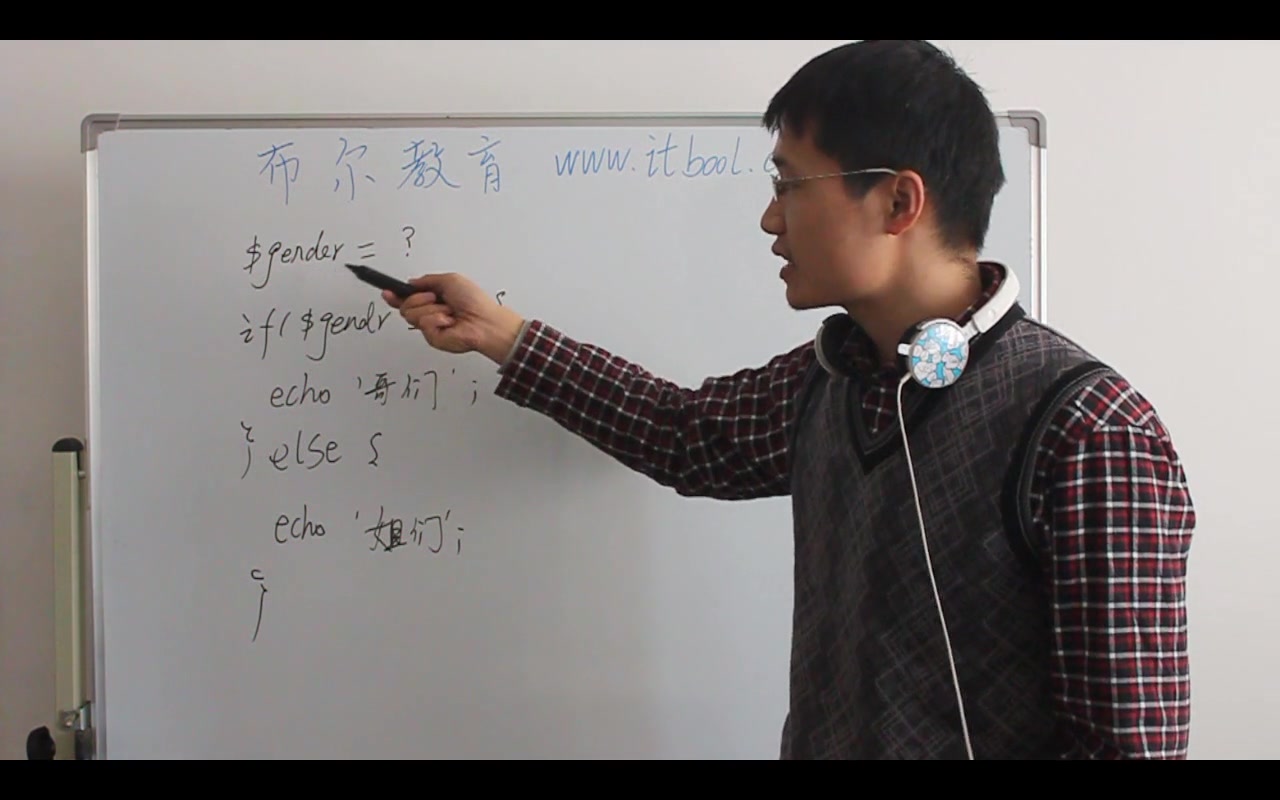 布尔教育 www.itbool.
$gender = ?
if( $gendr {
echo '哥们' ;
} else {
echo '姐们';
}